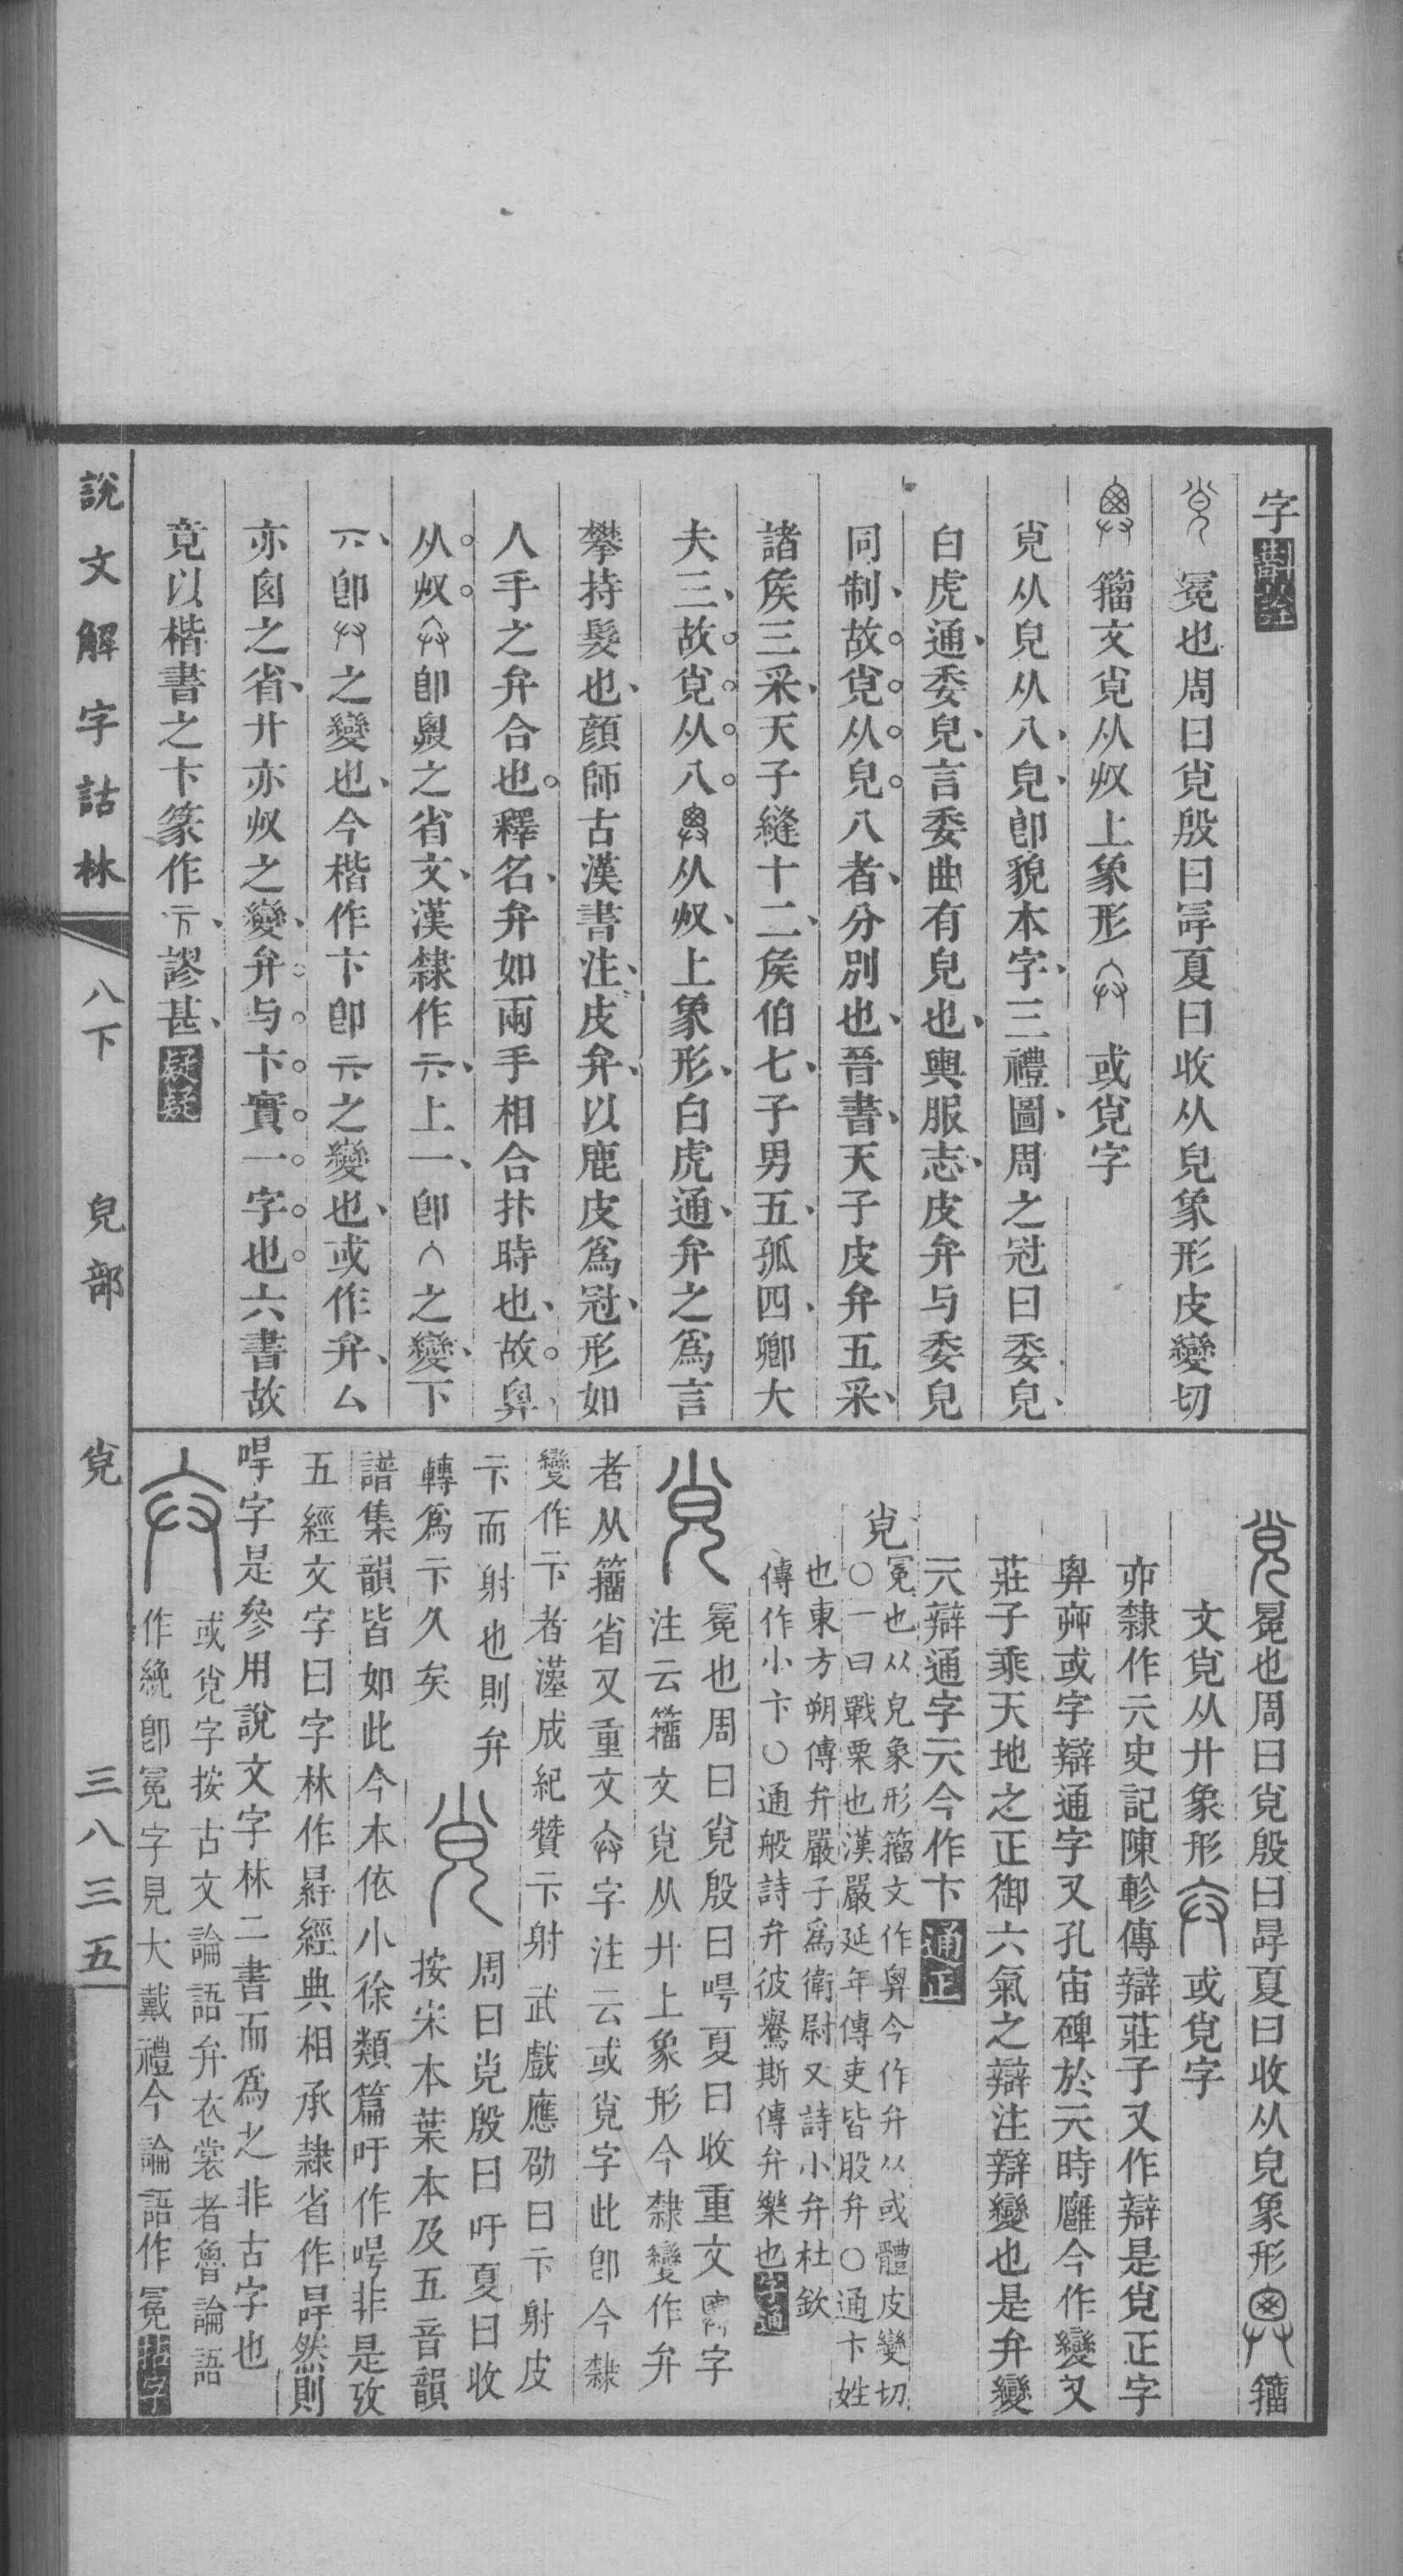 字
冕也周曰覍殷曰冔夏曰收从皃象形皮變切
籒文覍从𠬞上象形 或覍字
覍从皃从八皃卽貌本字三禮圖周之冠曰委皃
白虎通委皃言委曲有皃也輿服志皮弁与委皃
同制故覍从皃八者分別也晉書天子皮弁五采
諸矦三采天子縫十二矦伯七子男五孤四卿大
夫三故覍从八 从𠬞上象形白虎通弁之爲言
攀持髮也顏師古漢書注皮弁以鹿皮爲冠形如
人手之弁合也釋名弁如兩手相合抃時也故
从𠬞 卽 之省文漢隸作 上一卽 之變下
卽 之變也今楷作卞卽 之變也或作弁厶
亦囟之省廾亦𠬞之變弁与卞實一字也六書故
竟以楷書之卞篆作 謬甚疑疑
冕也周曰覍殷曰冔夏曰收从皃象形 籒
文覍从廾象形 或覍字
隸作 史記陳軫傳辯莊子又作辯是覍正字
或字辯通字又孔宙碑於 時廱今作變又
莊子乘天地之正御六氣之辯注辯變也是弁變
元辯通字元今作卞通正
覍
冕也从皃象形籒文作 今作弁从或體皮變切
〇一曰戰栗也漢嚴延年傳吏皆股弁〇通卞姓
也東方朔傳弁嚴子爲衛尉又詩小弁杜欽
傳作小卞〇通般詩弁彼鸒斯傳弁樂也字通
冕也周曰覍殷曰 夏曰收重文 字
注云籒文覍从廾上象形今隸變作弁
者从籒省又重文 字注云或覍字此卽今隸
變作 者漢成紀贊 射武戲應劭曰 射皮
而射也則弁
轉爲 久矣
周曰覍殷曰吁夏曰收
按宋本葉本及五音韻
譜集韻皆如此今本依小徐類篇吁作 非是攷
五經文字曰字林作 經典相承隸省作冔然則
字是參用說文字林二書而爲之非古字也
或覍字按古文論語弁衣裳者魯論語
作絻卽冕字見大戴禮今論語作冕
說文解字詁林 八下 皃部 覍 三八三五